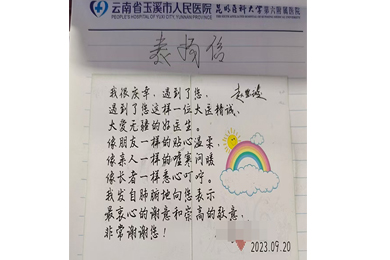 云南省玉溪市人民医院 昆明医科大学第六附属医院
PEOPLE'S HOSPITAL OF YUXI CITY, YUNNAN PROVINCE
表扬信
我很庆幸,遇到了您,
遇到了您这样一位大医精诚,
大爱无疆的好医生。
像朋友一样的贴心温柔,
像亲人一样的嘘寒问暖
像长者一样悉心叮咛。
我发自肺腑地向您表示
最衷心的谢意和崇高的敬意,
非常谢谢您!
2023.09.20